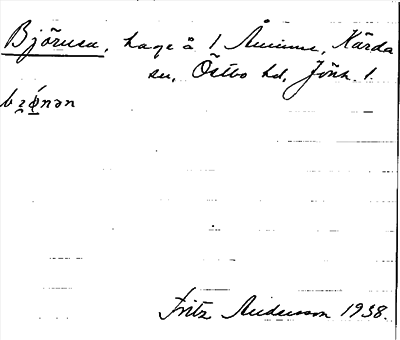 Björnen, hage å 1 Åminne, Kärda
sn, Östbo hd, Jönk. l.
bjǿ̱nən
Fritz Andersson 1938.